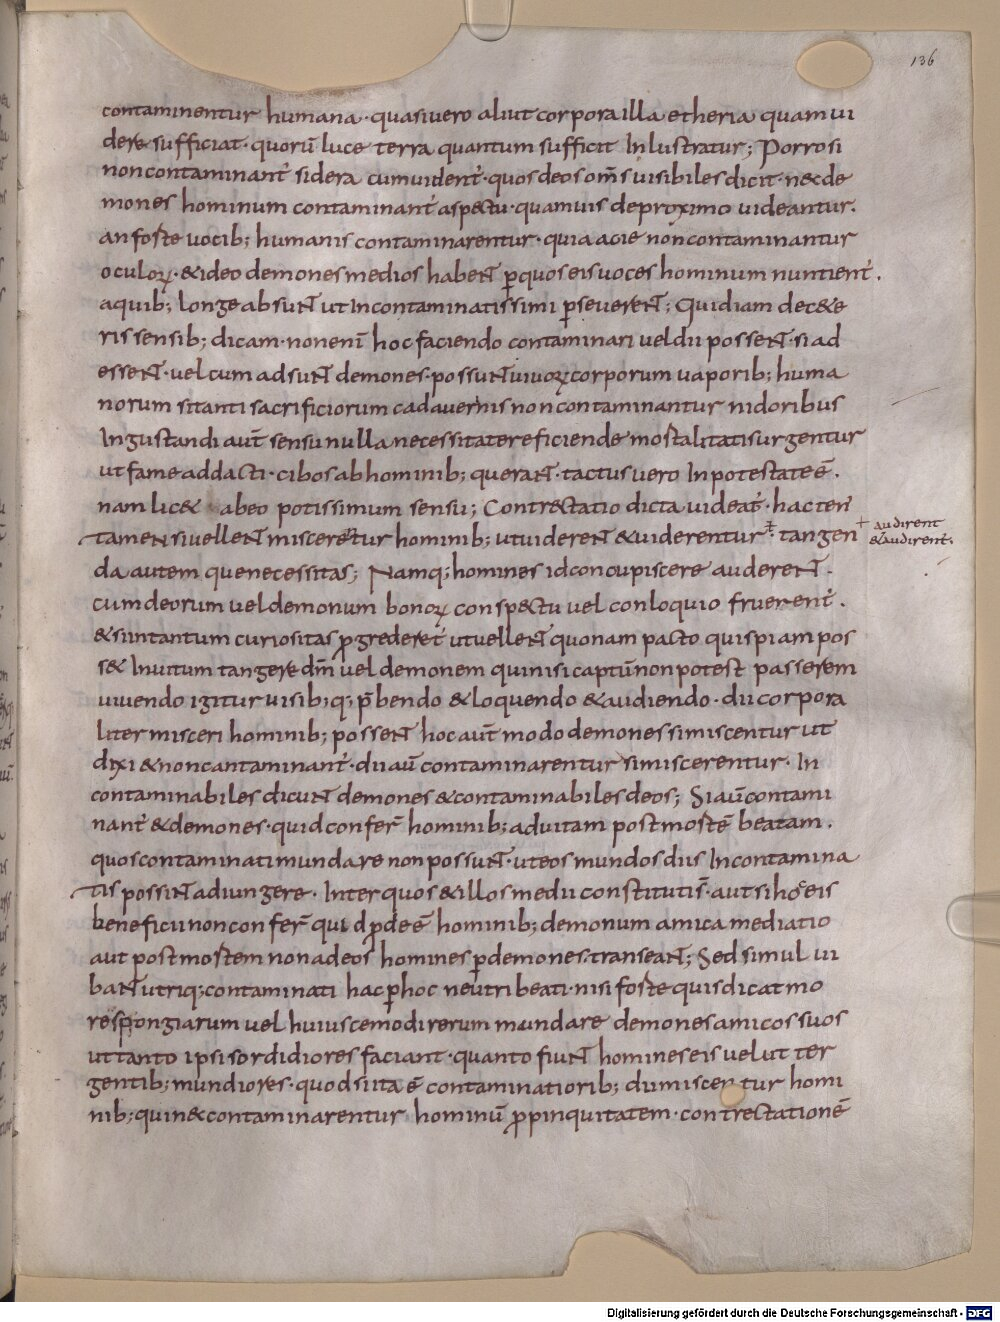 136
contaminentur humana · quasi vero aliut corpora illa etheria quam ui
dere sufficiat · quorū luce terra quantum sufficit Inlustratur; Porro si
non contaminant̄ sidera cum uident̄ · quos deos om̄s uisibiles dicit · n& de
mones hominum contaminant̄ aspectu · quamuis de proximo uideantur.
an forte uocib; humanis contaminarentur · quia acie non contaminantur
oculoꝝ · & ideo demones medios habent ꝑ quos eis uoces hominum nuntient̄ .
a quib; longe absunt ut Incontaminatissimi ꝑseuerent; Quid iam de c&e
ris sensib; dicam · non enī hoc faciendo contaminari uel dii possent · si ad
essent · uel cum adsunt demones · possunt uiuoꝝ corporum uaporib; huma
norum si tanti sacrificiorum cadauernis non contaminantur nidoribus
In gustandi aut̄ sensu nulla necessitate reficiende mostalitatis urgentur
ut fame addacti · cibos ab hominib; querant · tactus uero In potestate ē .
nam lic& abeo potissimum sensu; Contrectatio dicta uideat̄ · hac ten
tamen si uellent misceretur hominib; ut uiderent & uiderentur · tangen
+ audirent
& audirent̄.
da autem que necessitas; Namq; homines id concupiscere auderent .
cum deorum uel demonum bonoꝝ conspectu uel conloquio fruerent̄ .
& si intantum curiositas ꝓgrederet̄ ut uellent quonam pacto quispiam pos
s& Inuitum tangere dm̄ uel demonem qui nisi captū non potest passerem
uiuendo igitur uisibiq; p̄bendo & loquendo & audiendo · dii corpora
liter misceri hominib; possent hoc aut̄ modo demones si miscentur ut
dixi & non cantaminant̄ · dii aū contaminarentur si miscerentur · In
contaminabiles dicunt demones & contaminabiles deos; Si aū contami
nant̄ & demones · quid confer̄ hominib; ad uitam post mostē beatam .
quos contaminati mundare non possunt · ut eos mundos diis Incontamina
tis possint adiungere · Inter quos & illos medii constituti s̄ · aut si hoc eis
beneficii non confer̄ quid ꝓdeē hominib; demonum amica mediatio
aut post mostem non ad eos homines ꝑ demones transeant; Sed simul ui
bant utriq; contaminati hac ꝑ hoc neutri beati · nisi forte quis dicat mo
re spongiarum uel huiuscemodi rerum mundare demones amicos suos
ut tanto ipsi sordidiores faciant · quanto fiunt homines eis uelut ter
gentib; mundiores · quod si ita ē contaminatiorib; dii miscentur homi
nib; qui n& contaminarentur hominū ꝓpinquitatem · contrectationē
Digitalisierung gefördert durch die Deutsche Forschungsgemeinschaft - DFG